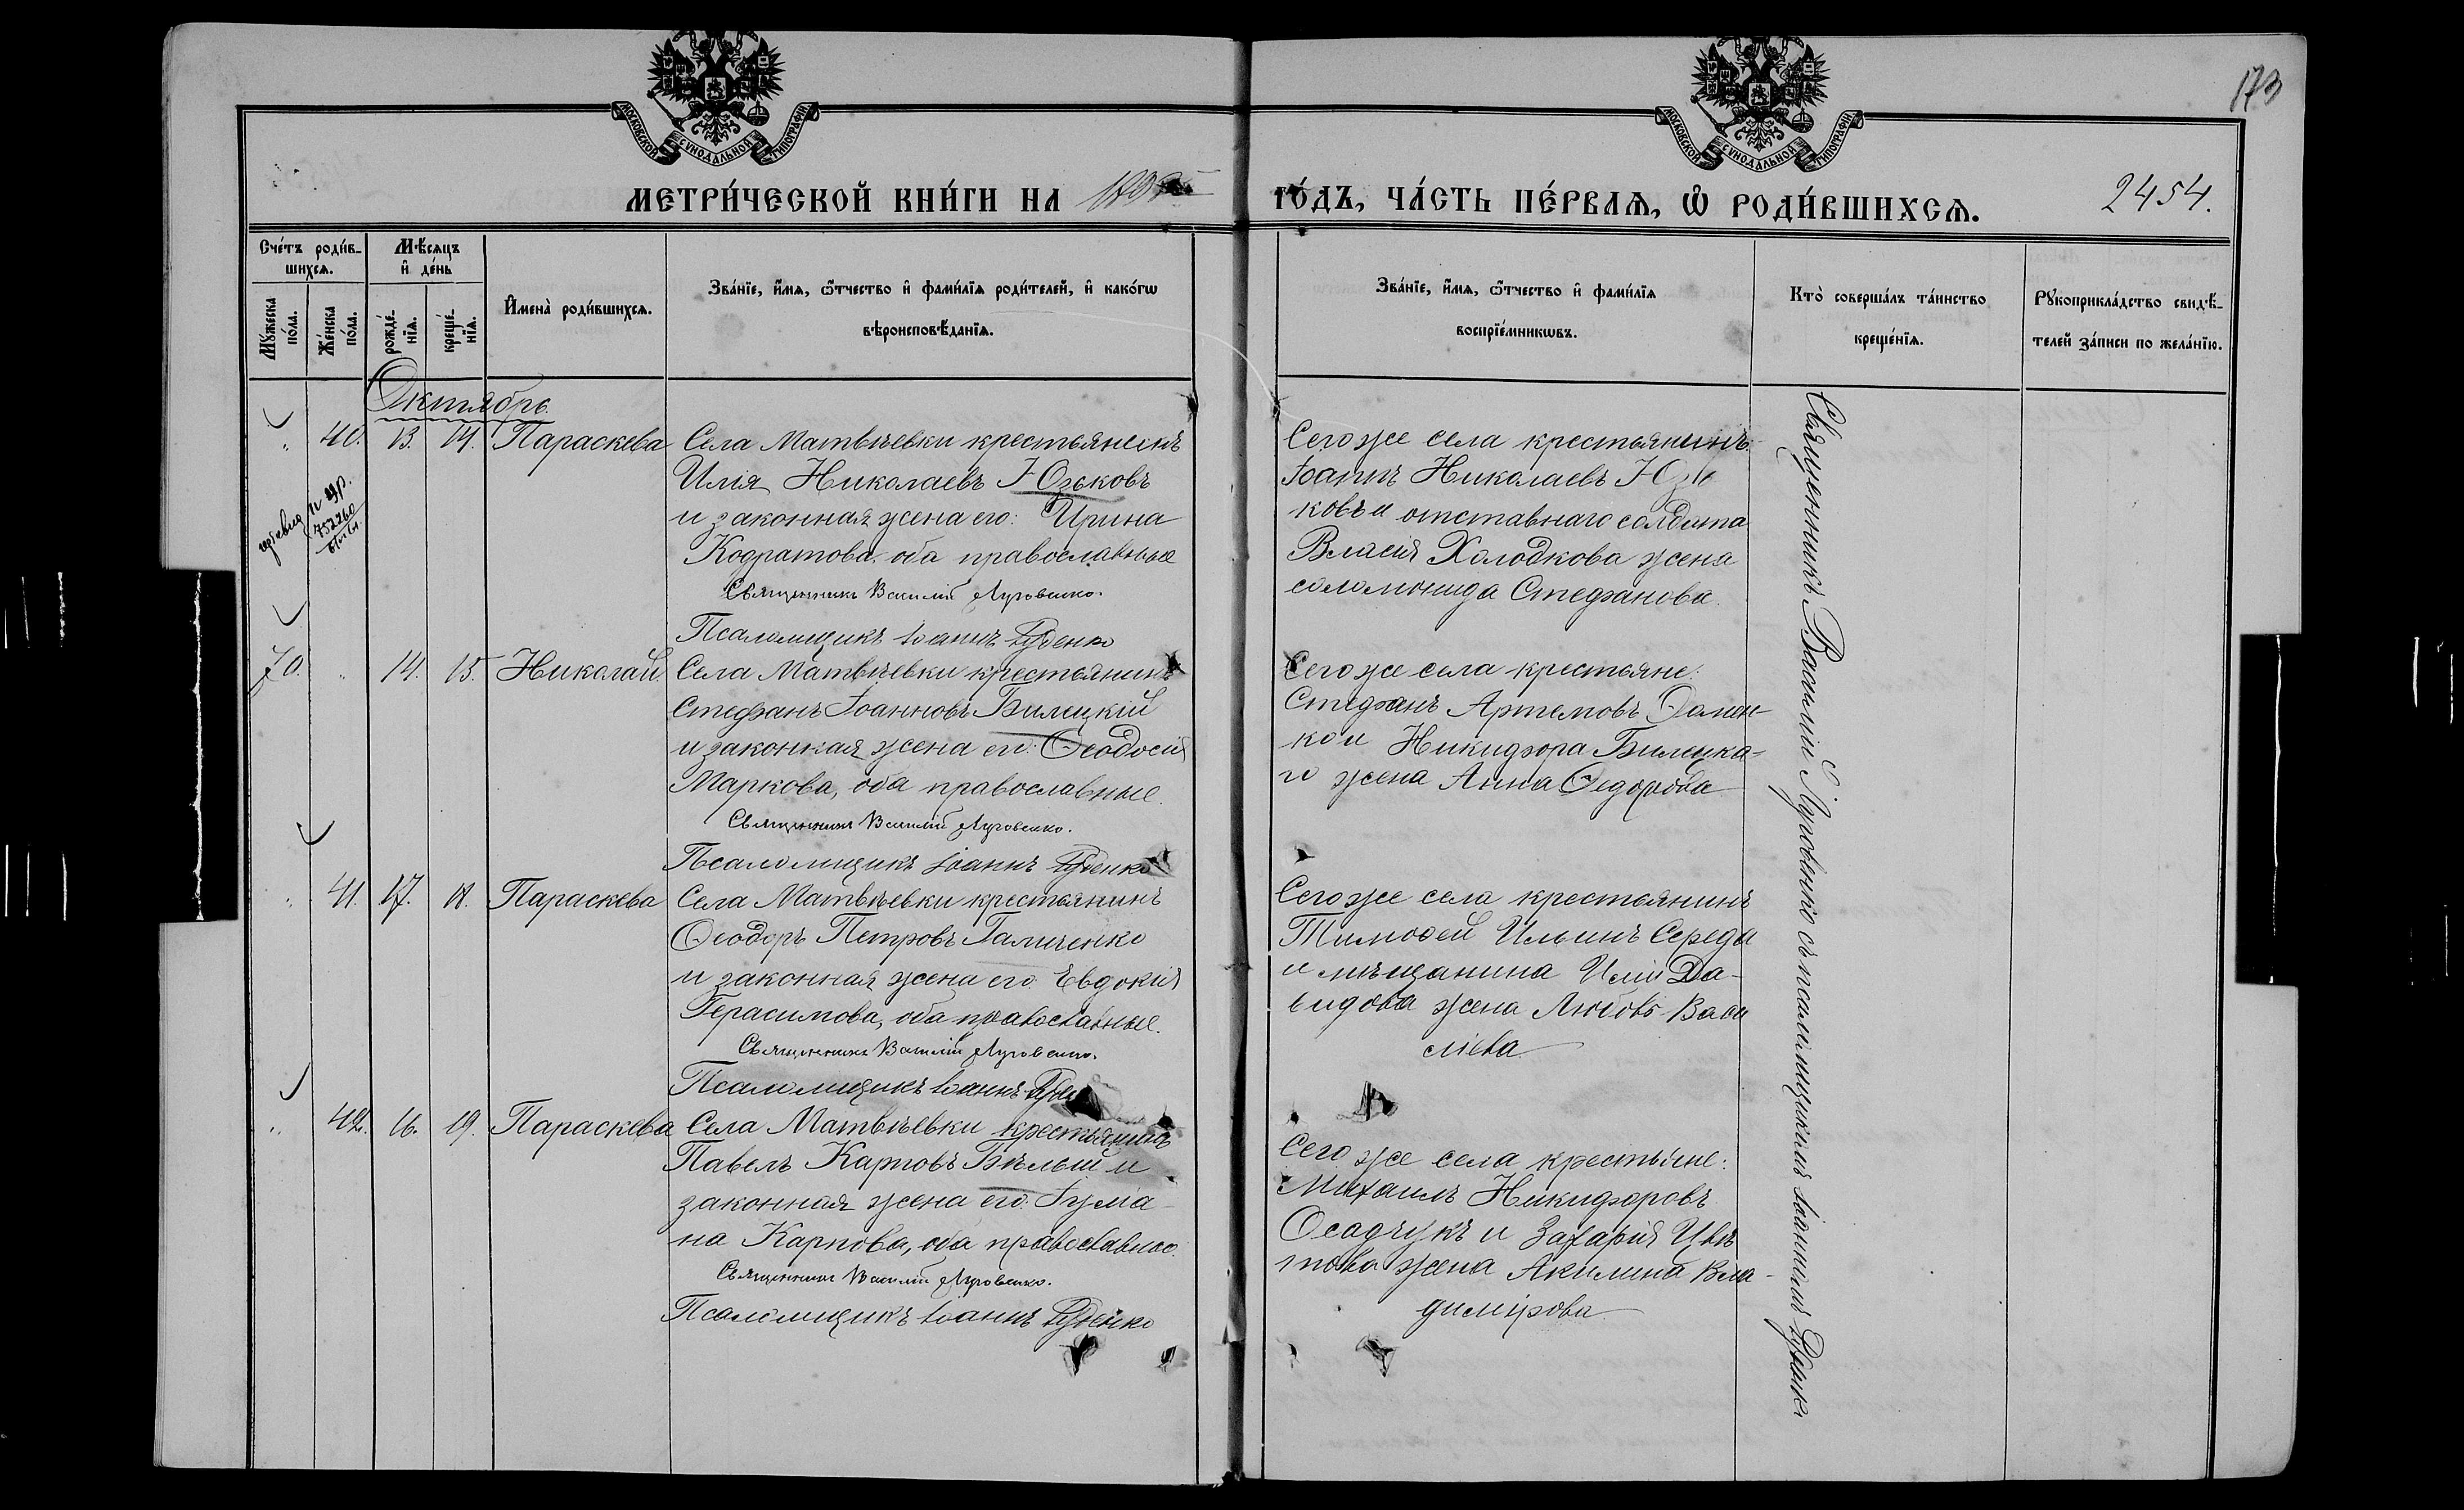 173
МОСКОВСКОЙ СѴНОДАЛЬНОЙ ТИПОГРАФІИ
МОСКОВСКОЙ СѴНОДАЛЬНОЙ ТИПОГРАФІИ
МЕТРИ́ЧЕСКОЙ КНИ́ГИ НА
ГО́ДЪ, ЧА́СТЬ ПЕ́РВАѦ, Ѡ҆ РОДИ́ВШИХСѦ.
2454.
Сче́тъ роди́в-
шихсѧ.
Мꙋ́жеска
по́ла.
Же́нска
по́ла.
Мѣ́сѧцъ
и҆ де́нь
рожде́-
нїѧ.
креще́-
нїѧ.
И҆мена̀ роди́вшихсѧ.
Зва́нїе, и҆́мѧ, ѻ҆́тчество и҆ фами́лїѧ роди́телей, и҆ како́гѡ
вѣроисповѣ́данїѧ.
Зва́нїе, и҆́мѧ, ѻ҆́тчество и҆ фами́лїѧ
воспрїе́мникѡвъ.
Кто̀ соверша́лъ та́инство
креще́нїѧ.
Рꙋкоприкла́дство свидѣ́-
телей за́писи по жела́нїю.
Октябрь.
" 40. 13. 14. Параскева
Села Матвѣевки крестьянинъ
Илія Николаевъ Юзьковъ
и законная жена его: Ирина
Кодратова, оба православные
Священникъ Василій Луговенко.
Псаломщикъ Іоаннъ Руденко
Сего же села крестьянинъ
Іоаннъ Николаевъ Юзь
ковъ и отставнаго солдата
Власія Холодкова жена
Соломонида Стефанова.
752260
70. " 14. 15. Николай
Села Матвѣевки крестьянинъ
Стефанъ Іоанновъ Билецкій
и законная жена его: Ѳеодосія
Маркова, оба православные.
Священникъ Василій Луговенко.
Псаломщикъ Іоаннъ Руденко
Сего же села крестьяне:
Стефанъ Артемовъ
ко и Никифора Билецка-
го жена Анна Ѳедорова
" 41. 17. 18. Параскева
Села Матвѣевки крестьянинъ
Ѳеодоръ Петровъ Галиченко
и законная жена его: Евдокія
Герасимова, оба православные.
Священникъ Василій Луговенко.
Псаломщикъ Іоаннъ
Сего же села крестьянинъ
Тимоѳей Ильинъ Середа
и мѣщанина Иліи Да-
видова жена Любовь Васи
лієва
" 42. 16. 19. Параскева
Села Матвѣевки крестьянинъ
Павелъ Карповъ Бѣлый и
законная жена его: Іуліа-
на Карпова, оба православные.
Священникъ Василій Луговенко.
Псаломщикъ Іоаннъ Руденко
Сего же села крестьяне:
Михаилъ Никифоровъ
Осадчукъ и Захарія Цвѣ
ткова жена Акилина Вла-
димірова
Священникъ Василій Луговенко съ псаломщикомъ Іоанномъ Руденко